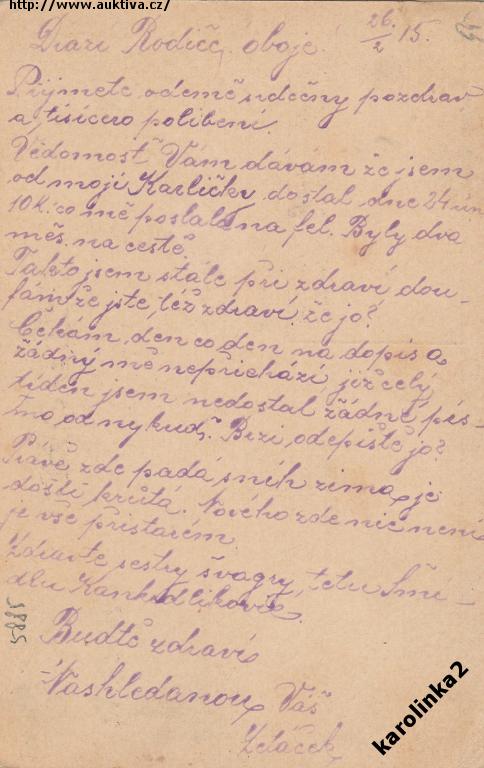 http://www.auktiva.cz/
Drazí Rodiče, oboje! 26./2 15.
Přijmete odemě srdečny pozdrav
a tisícero polibení.
Vědomosť Vám dávám že jsem
od mojí Karličky dostal dne 24 ún
10 K. co mě poslala na fel. Byly dva
měs. na cestě.
Takto jsem stále při zdraví dou-
fám že jste též zdraví že jo?
Čekám den co den na dopis a
žádný mě nepřichází již celý
tíden jsem nedostal žádné pís-
mo od nykud. Brzi odepište jo?
Právě zde padá sníh zima je
dosti krutá. Nového zde nic není
je vše přistarém.
Zdravte sestry švagry, tetu
Buďtě zdraví
Nashledanou Váš
5885
karolinka2